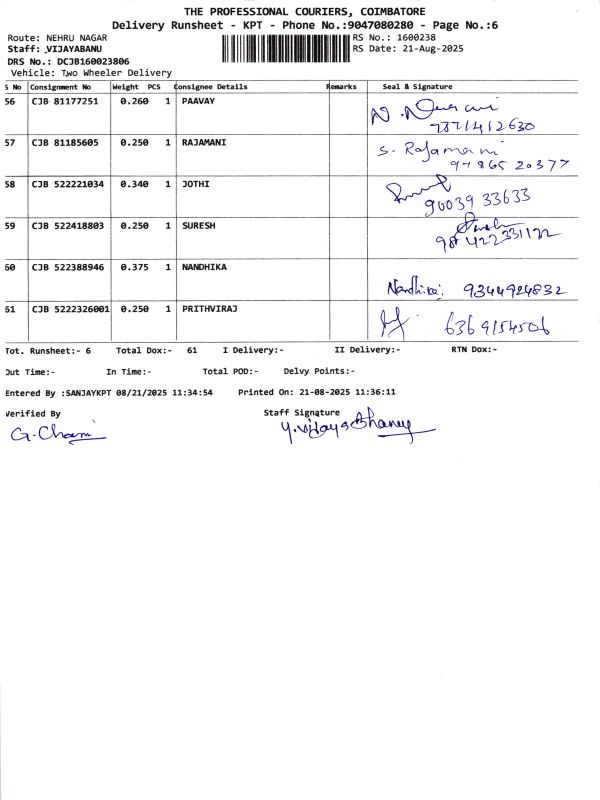 THE PROFESSIONAL COURIERS, COIMBATORE
Delivery Runsheet - KPT - Phone No.:9047080280 - Page No.:6
Route: NEHRU NAGAR RS No.: 1600238
Staff: VIJAYABANU RS Date: 21-Aug-2025
DRS No.: DCJB160023806
Vehicle: Two Wheeler Delivery
S No Consignment No Weight PCS Consignee Details Remarks Seal & Signature
56 CJB 81177251 0.260 1 PAAVAY N.
7871412630
57 CJB 81185605 0.250 1 RAJAMANI S. Rajamani
97865 20377
58 CJB 522221034 0.340 1 JOTHI
90039 33633
59 CJB 522418803 0.250 1 SURESH
60 CJB 522388946 0.375 1 NANDHIKA Nandhika 9344924832
61 CJB 5222326001 0.250 1 PRITHVIRAJ 6369154506
Tot. Runsheet:- 6 Total Dox:- 61 I Delivery:- II Delivery:- RTN Dox:-
Out Time:- In Time:- Total POD:- Delvy Points:-
Entered By :SANJAYKPT 08/21/2025 11:34:54 Printed On: 21-08-2025 11:36:11
Verified By Staff Signature